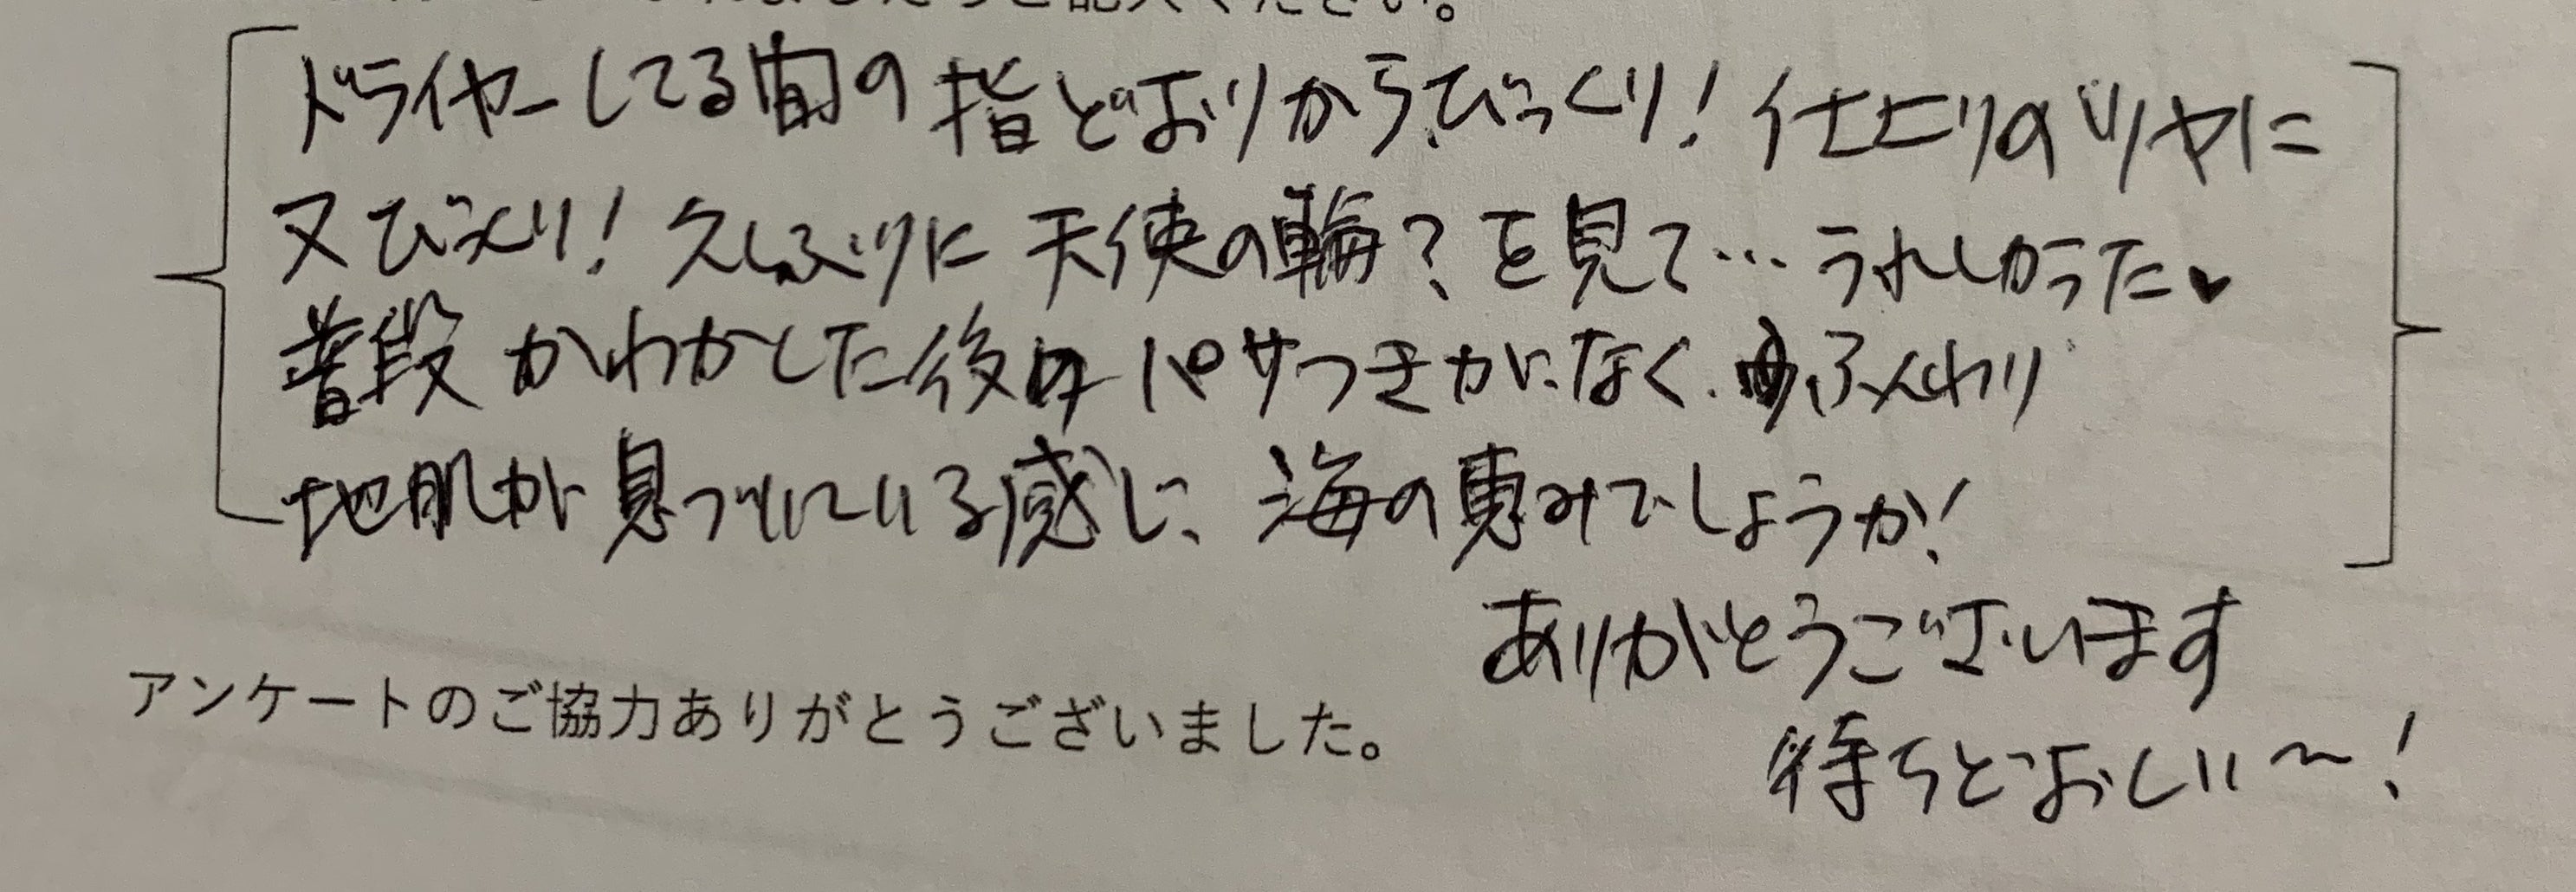 ご記入ください。
ドライヤーしてる間の指どおりからびっくり！仕上りのツヤに
又びっくり！久しぶりに天使の輪？を見て…うれしかった♥
普段かわかした後のパサつきがなく、ふんわり
地肌が息づいている感じ、海の恵みでしょうか！
ありがとうございます
待ちどおしい〜！
アンケートのご協力ありがとうございました。